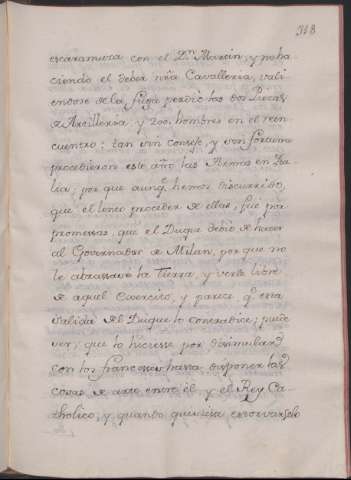 318
escaramuza con el Dn Martin, y no ha
ciendo el deber nra Cavalleria, vali
endose de la fuga perdió las dos Piezas
de Artilleria y 200 hombres en el ren
cuentro: tan sin consejo, y sin fortuna
procedieron este año las Armas en Ita
lia; por que aunq hemos discurrido,
que el lento proceder de ellas, fué por
promessas, que el Duque debió de hacer
al Governador de Milan, por que no
le abrassara la Tierra, y verse libre
de aquel Exercito, y parece q esta
salida del Duque lo contradice; puede
ser, que lo hiciesse por dissimulard
con los franceses hasta disponer las
cosas de arte entre él y el Rey Ca
tholico, y quando quisiera